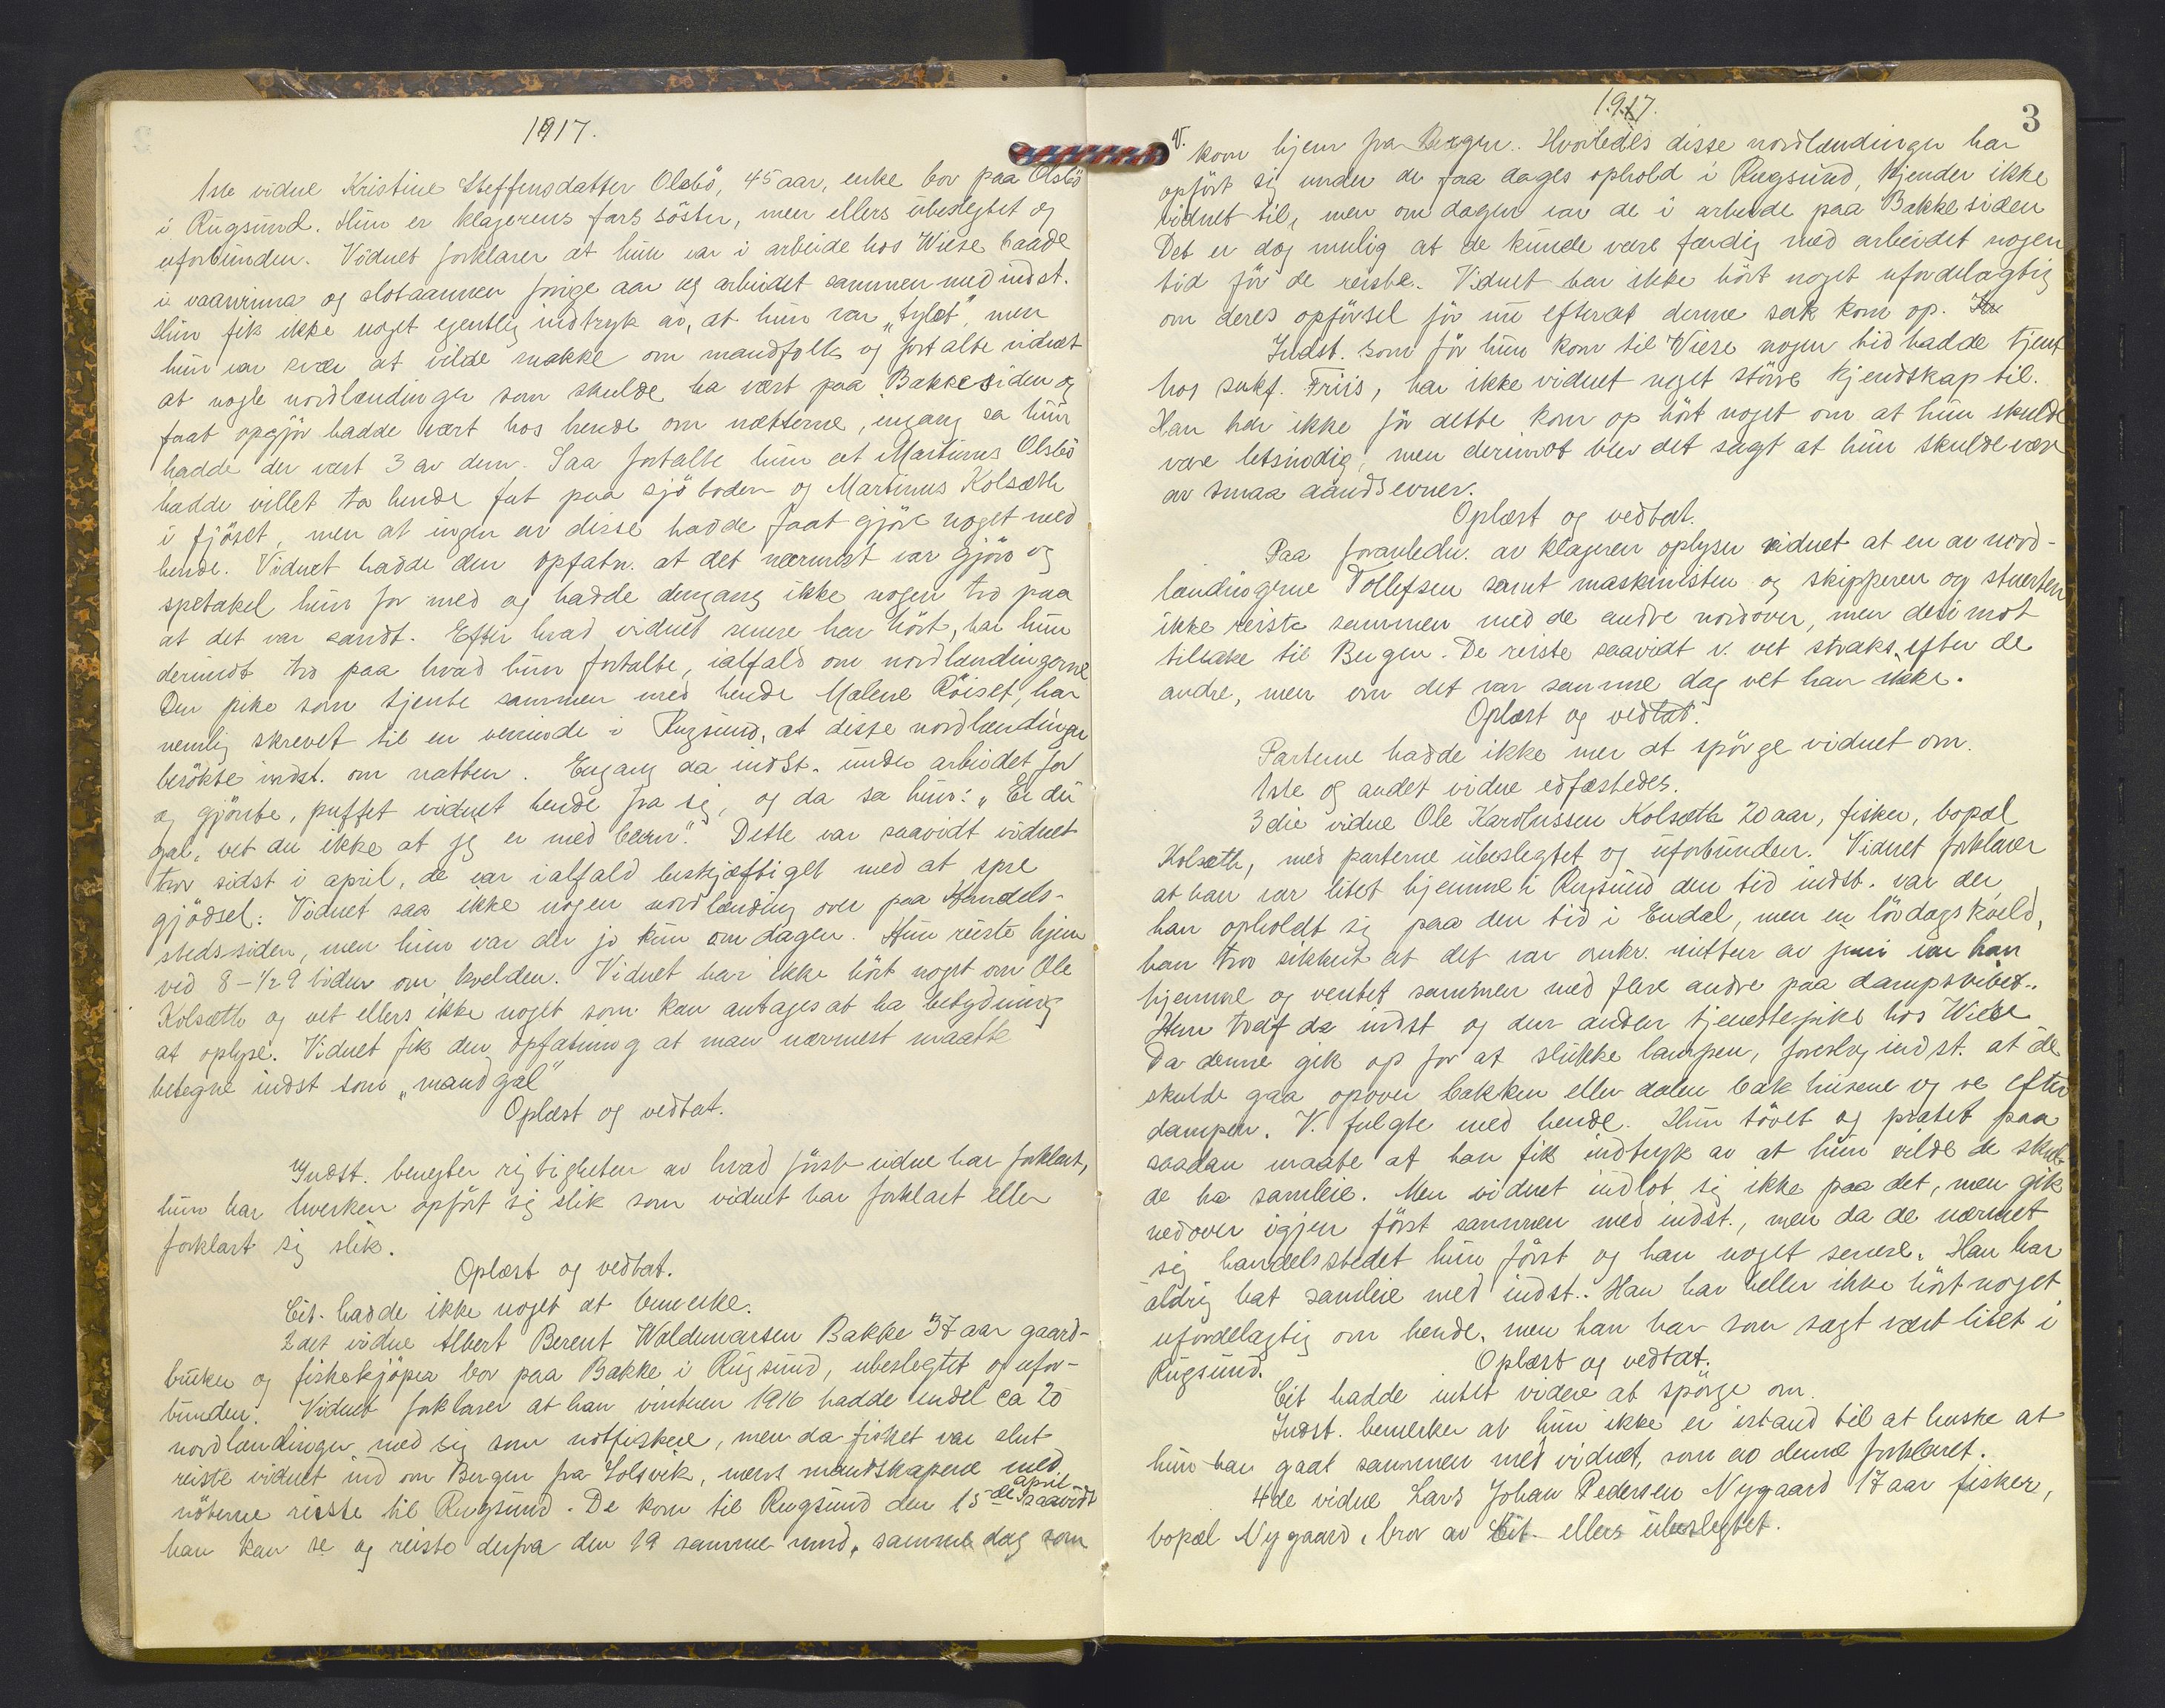 1917.
1ste vidne Kristine Steffensdatter Olsbö, 45 aar, enke bor paa Olsbö
i Rugsund. Hun er klagerens fars söster, men ellers ubeslegtet og
uforbunden. Vidnet forklarer at hun var i arbeide hos Wiese baade
i vaarvinna og slotaannen forrige aar og arbeidet sammen med indst.
Hun fik ikke noget egentlig indtryk av, at hun var "tylet", men
hun var svær at vilde snakke om mandfolk og fortalte vidnet
at nogle nordlændinger som skulde ha vært paa Bakkesiden og
faat opgjör hadde vært hos hende om nætterne, engang sa hun
hadde der vært 3 av dem. Saa fortalte hun at Martinus Olsbö
hadde villet ta hende fat paa sjöboden og Martinus Kolsæth
i fjöset, men at ingen av disse hadde faat gjöre noget med
hende. Vidnet hadde den opfatn. at det nærmest var gjön og
spetakel hun for med og hadde dengang ikke nogen tro paa
at det var sandt. Efter hvad vidnet senere har hört, har hun
derimot tro paa hvad hun fortalte, ialfald om nordlændingerne
Den pike som tjente sammen med hende Malene Röiset, har
nemlig skrevet til en veninde i Rugsund, at disse nordlændinger
besökte indst. om natten. Engang da indst. under arbeidet for
og gjönte, puffet vidnet hende fra sig, og da sa hun: "Er du
gal, vet du ikke at jeg er med barn". Dette var saavidt vidnet
tror sidst i april, de var ialfald beskjæftiget med at spre
gjödsel. Vidnet saa ikke nogen nordlænding over paa Handels-
stedssiden, men hun var der jo kun om dagen. Hun reiste hjem
ved 8 - 1/2 9 tiden om kvelden. Vidnet har ikke hört noget om Ole
Kolsæth og vet ellers ikke noget som kan antages at ha betydning
at oplyse. Vidnet fik den opfatning at man nærmest maatte
betegne indst som "mandgal"
Oplæst og vedtat.
Indst. benegter rigtigheten av hvad förste vidne har forklart,
hun har hverken opfört sig slik som vidnet har forklart eller
forklart sig slik.
Oplæst og vedtat.
Cit. hadde ikke noget at bemerke.
2det vidne Albert Berent Waldemarsen Bakke 37 aar gaard-
bruker og fiskekjöper bor paa Bakke i Rugsund, ubeslegtet og ufor-
bunden. Vidnet forklarer at han vinteren 1916 hadde endel ca 20
nordlændinger med sig som notfiskere, men da fisket var slut
reiste vidnet ind om Bergen fra Solsvik, mens mandskapene med
nöterne reiste til Rugsund. De kom til Rugsund den 15de april saavidt
han kan se og reiste derfra den 19 samme mnd, samme dag som
1917.
3
V. kom hjem fra Bergen. Hvorledes disse nordlændinger har
opfört sig under de faa dages ophold i Rugsund, kjender ikke
vidnet til, men om dagen var de i arbeide paa Bakkesiden
Det er dog mulig at de kunde være færdig med arbeidet nogen
tid för de reiste. Vidnet har ikke hört noget ufordelagtig
om deres opförsel för nu efterat denne sak kom op.
Indst. som för hun kom til Wiese nogen tid hadde tjent
hos sakf. Friis, har ikke vidnet noget större kjendskap til.
Han har ikke för dette kom op hört noget om at hun skulde
være letsindig, men derimot blev det sagt at hun skulde være
av smaa aandsevner.
Oplæst og vedtat.
Paa foranledn. av klageren oplyser vidnet at en av nord-
lændingerne Tollefsen samt maskinisten og skipperen og stuerten
ikke reiste sammen med de andre nordover, men derimot
tilbake til Bergen. De reiste saavidt v. vet straks efter de
andre, men om det var samme dag vet han ikke.
Oplæst og vedtat.
Parterne hadde ikke mer at spörge vidnet om.
1ste og andet vidne edfæstedes.
3die vidne Ole Karolussen Kolsæth 20 aar, fisker, bopæl
Kolsæth, med parterne ubeslegtet og uforbunden. Vidnet forklarer
at han var litet hjemme i Rugsund den tid indst. var der,
han opholdt sig paa den tid i Endal, men en lördagskveld,
han tror sikkert at det var omkr. midten av juni var han
hjemme og ventet sammen med flere andre paa dampskibet.
Han traf da indst og den anden tjenestepike hos Wiese
Da denne gik op for at slukke lampen, foreslog indst. at de
skulde gaa opover bakken eller dalen bak husene og se efter
dampen. V. fulgte med hende. Hun tövet og pratet paa
saadan maate at han fik indtryk av at hun vilde de skul-
de ha samleie. Men vidnet indlot sig ikke paa det, men gik
nedover igjen först sammen med indst., men da de nærmet
sig handelsstedet hun först og han noget senere. Han har
aldrig hat samleie med indst.. Han har heller ikke hört noget
ufordelagtig om hende, men han har som sagt vært litet i
Rugsund.
Oplæst og vedtat.
Cit hadde intet videre at spörge om.
Indst. bemerker at hun ikke er istand til at huske at
hun har gaat sammen med vidnet, som av denne forklaret.
4de vidne Lars Johan Pedersen Nygaard 17 aar fisker,
bopæl Nygaard, bror av Cit. ellers ubeslegtet.